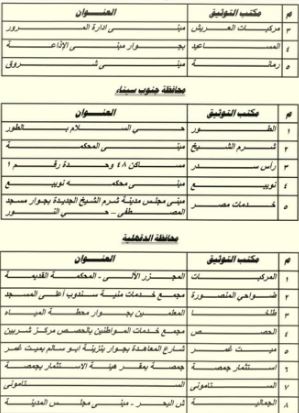 م مكتب التوثيق العنوان
٣ مركبات العريش مبنى ادارة المرور
٤ المساعيد بجوار مبنى الإذاعة
٥ رمانة مبنى شروق
محافظة جنوب سيناء
م مكتب التوثيق العنوان
١ الطور حى السلام بالطور
٢ شرم الشيخ مبنى المحكمة
٣ رأس سدر مساكن ٤٨ وحدة رقم ١
٤ نويبع مبنى محكمة نويبع
٥ خدمات مصر مبنى مجلس مدينة شرم الشيخ الجديدة بجوار مسجد
المصطفى - حي النور
محافظة الدقهلية
م مكتب التوثيق العنوان
١ المركبات المجزر الآلى - المحكمة القديمة
٢ ضواحي المنصورة مجمع خدمات منية سندوب أعلى المسجد
٣ طلخا المعلمين بجوار محطة المياه
٤ الحصص مجمع خدمات المواطنين بالحصص مركز شربين
٥ ميت غمر شارع المعاهدة بجوار بنزينة ابو سالم بميت غمر
٦ استثمار جمصة جمصة بمقر هيئة الاستثمار بجمصة
٧ الستامونى الستامونى
٨ الجمالية ش البحر - مبنى مجلس المدينة